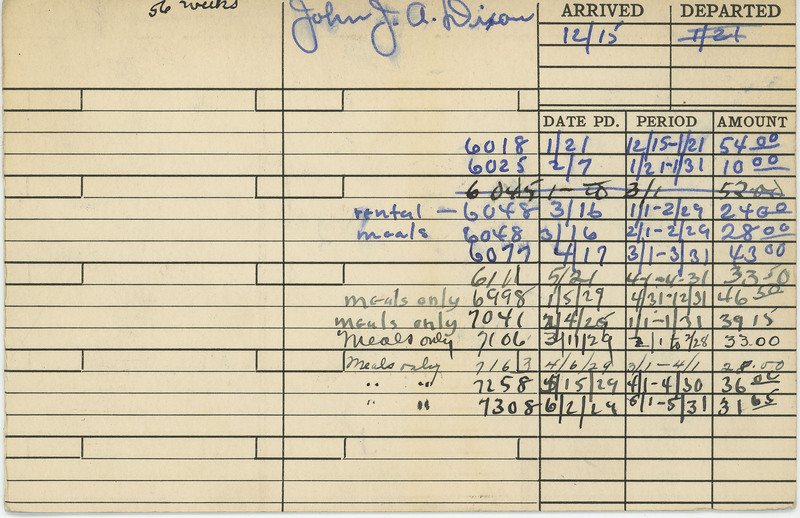 56 weeks
John J. A. Dixon
ARRIVED DEPARTED
12/15 1/21
DATE PD. PERIOD AMOUNT
6018 1/21 12/15-1/21 54 00
6025 2/7 1/21-1/31 10 00
6045 1- to 3/1 52 00
rental - 6048 3/16 1/1-2/29 24 00
meals 6048 3/16 2/1-2/29 28 00
6077 4/17 3/1-3/31 43 00
6111 5/21 4-1-4-31 33 50
meals only 6998 1/5/29 4/31-12/31 46 50
meals only 7041 2/4/29 1/1-1/31 39 15
Meals only 7106 3/11/29 2/1 to 2/28 33.00
Meals only 7163 4/6/29 3/1-4/1 28.00
" " 7258 5/15/29 4/1-4/30 36 00
" " 7308 6/2/29 5/1-5/31 31 65